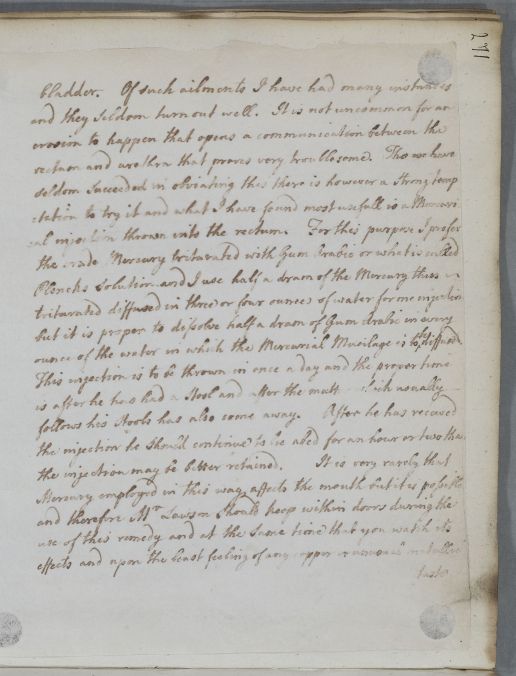 241
bladder. Of such ailments I have had many instances
and they seldom turn out well. It is not uncommon for an
erosion to happen that opens a communication between the
rectum and urethra that proves very troublesome. Tho we have
seldom succeeded in obviating this there is however a strong temp
tation to try it and what I have found most usefull is a Mercuri
al injection thrown into the rectum. For this purpose I prefer
the crude Mercury triturated with Gum Arabic or what is called
Plencks Solution and I use half a dram of the Mercury thus
triturated diffused in three or four ounces of water for one injection
but it is proper to dissolve half a dram of Gum Arabic in every
ounce of the water in which the Mercurial Mucilage is to be diffused.
This injection is to be thrown in once a day and the proper time
is after he has had a Stool and after the which usually
follows his Stools has also come away. After he has received
the injection he should continue to be abed for an hour or two that
the injection may be better retained. It is very rarely that
Mercury employed in this way affects the mouth but it is possible
and therefore Mr Lawson should keep within doors during the
use of this remedy and at the same time that you watch its
effects and upon the least feeling of any copper or metallic
taste